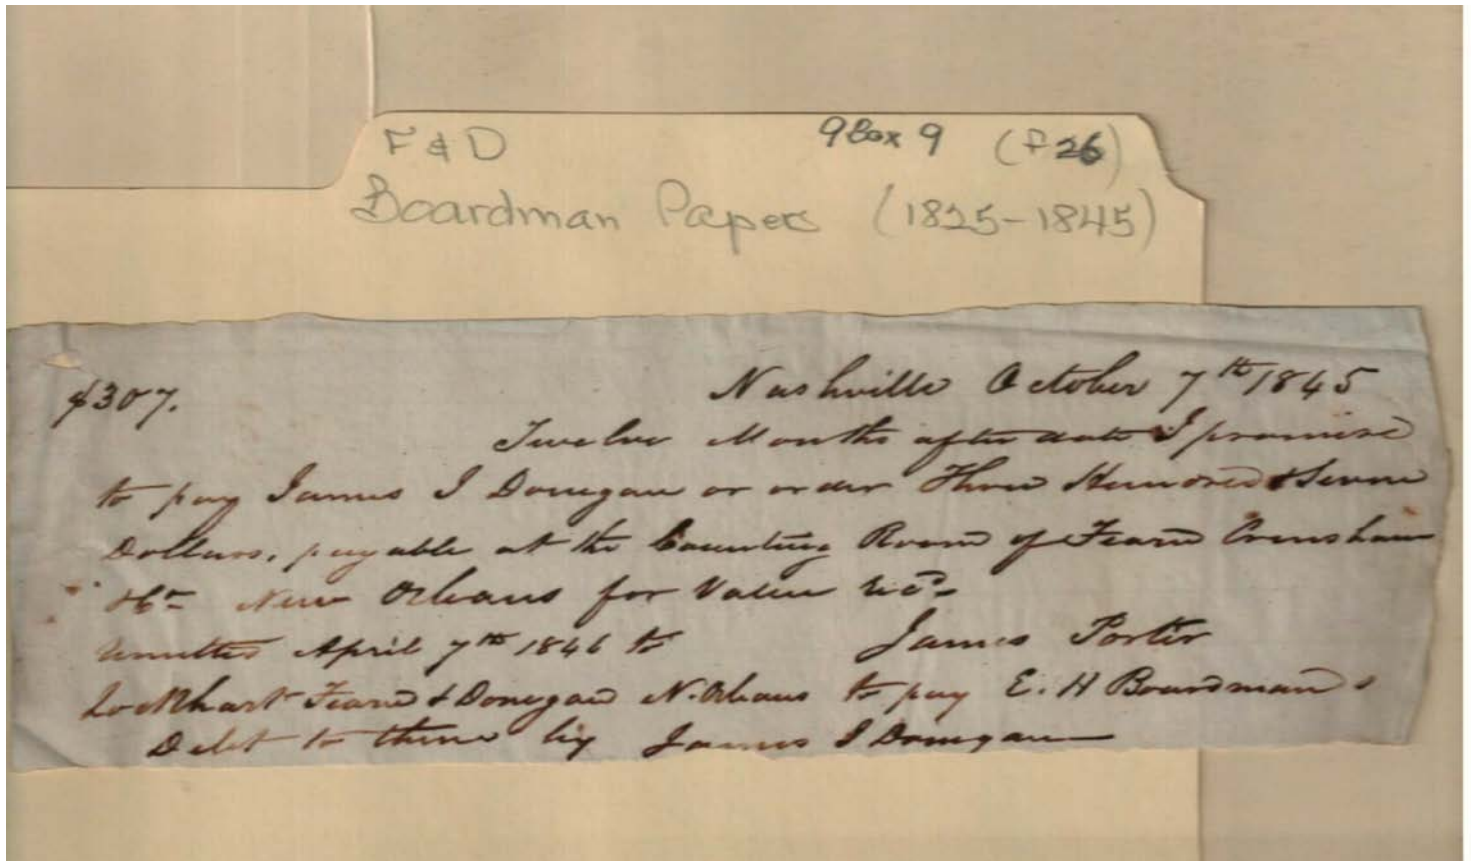 F & D 9 Box 9 (f 26)
Boardman Papers (1825-1845)
$307. Nashville October 7th 1845
Twelve Months after date I promise
to pay James J Donegan or order Three Hundred & Seven
Dollars, payable at the Counting Room of Fearn Crenshaw
& Co New Orleans for Value recd-
Remitted April 7th 1846 to James Porter
Lockhart Fearn & Donegan N. Orleans to pay E. H Boardmans
Debt to them by James J Donegan